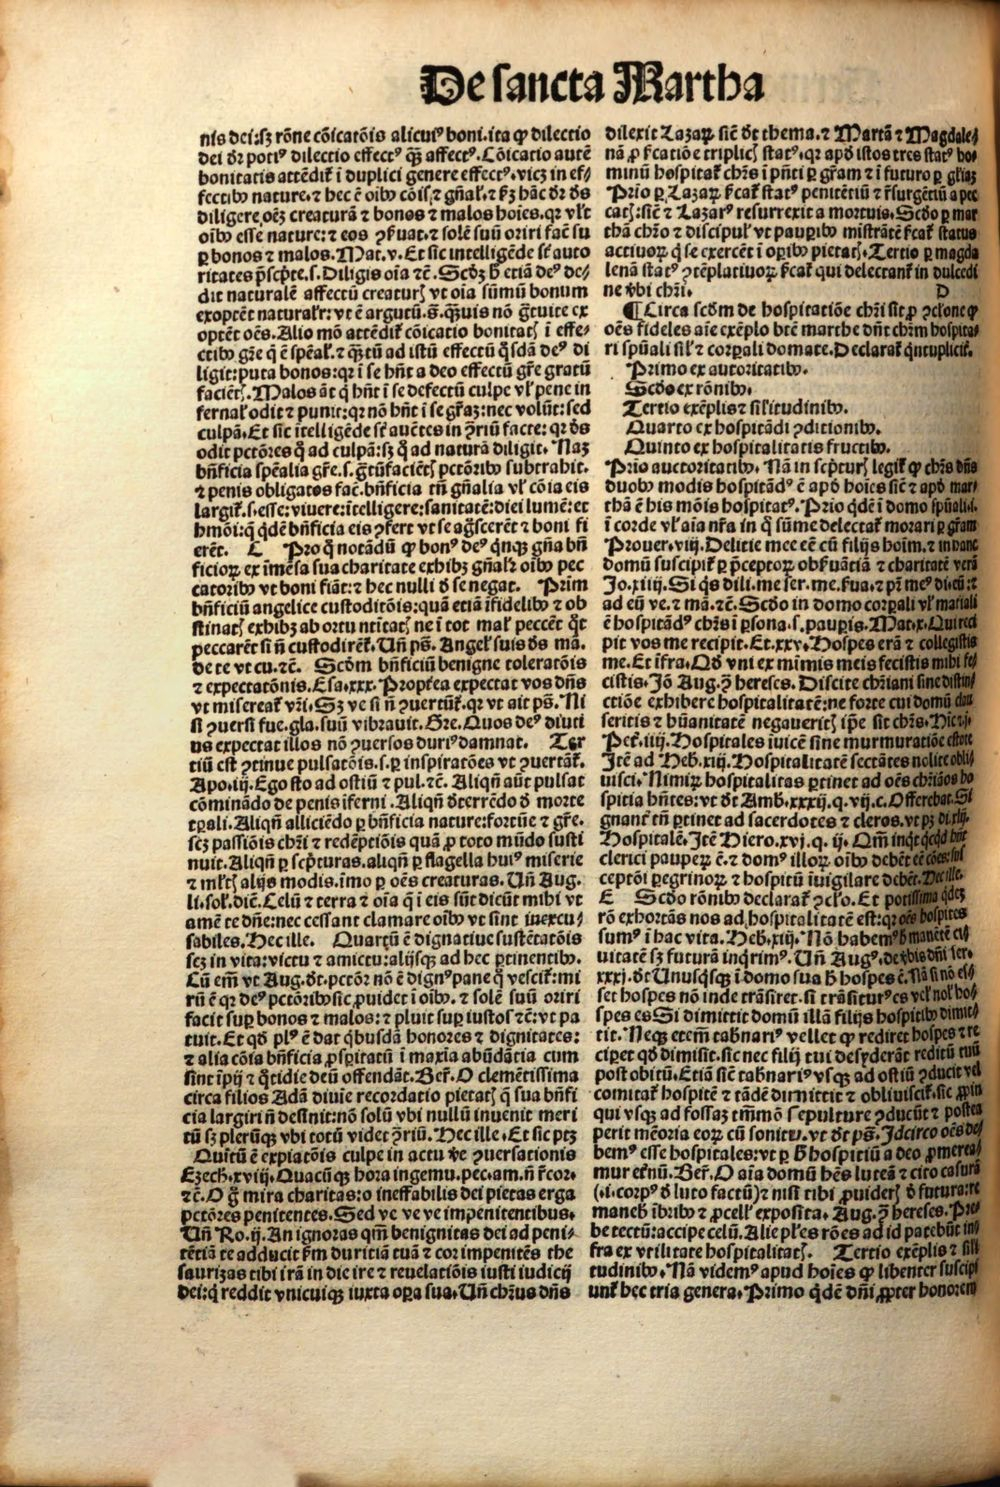 De sancta Martha
nis dei:sꝫ rōne cōicatōis alicuiꝰ boni.ita ꝙ dilectio
dei dr̄ potiꝰ dilectio effectꝰ qꝫ̄ affectꝰ.Cōicatio autē
bonitatis attēdit᷑ ī duplici genere effectꝰ.vicꝫ in ef-
fectibꝰ nature.⁊ hec ē oibꝰ cōis,⁊ gn̄al᷑.⁊ ẜm hāc dr̄ ds̄
diligere oēꝫ creaturā ⁊ bonos ⁊ malos hoīes.qꝛ vl̓t
oībꝰ esse nature:⁊ eos ꝯẜuat.⁊ solē suū oriri facē su
ꝑ bonos ⁊ malos.Mat.v.Et sic intelligēde st̄ auto
ritates p̄scp̄te.s.Diligis oīa ⁊c̄.Scd̓ꝫ hͦ etiā deꝰ de-
dit naturalē affectū creaturꝭ vt oīa sūmū bonum
exoptēt natural̓r:vt ē argutū.s̄.qͣuis nō gͣtuite ex
optēt oēs.Alio mō attēdit᷑ cōicatio bonitatꝭ ī effe-
ctibꝰ gr̄e q̄ ē spēal᷑.⁊ qꝫ̄tū ad istū effectū qͦsdā deꝰ di
ligit:puta bonos:qꝛ ī se hn̄t a deo effectū gr̄e gratū
faciētꝭ.Malos āt q̇ hn̄t ī se defectū culpe vl̓ pene in
fernal᷑ odit ⁊ punit:qꝛ nō hn̄t ī se gr̄aꝫ:nec volūt:sed
culpā.Et sic ītelligēde st̄ auētes in ꝯ̄riū facte:qꝛ ds̄
odit pctōres qͣ ad culpā:sꝫ qͣ ad naturā diligit.Naꝫ
bn̄ficia spēalia gr̄e.s.gͣtūfaciētꝭ pctōribꝰ subtrahit.
⁊ penis obligatos fac̄.bn̄ficia tn̄ gn̄alia vl̓ cōia eis
largit᷑.s.esse:viuere:ītelligere:sanitatē:diei lumē:et
hmōi:q̄ qͥdē bn̄ficia eis ꝯfert vt se agͦscerēt ⁊ boni fi
erēt. C Pro qͦ notādū ꝙ bonꝰ deꝰ qͥnqꝫ gn̄a bn̄
ficioꝝ ex īmēsa sua charitate exhibꝫ gn̄al̓r oībꝰ pec
catoribꝰ vt boni fiāt:⁊ hec nulli dͤ se negat. Prim̄
bn̄ficiū angelice custoditōis:quā etiā īfidelibꝰ ⁊ ob
stinatꝭ exhibꝫ ab ortu ntītatꝭ ne ī tot mal᷑ peccēt qͦt
peccarēt si n̄ custodirēt᷑.Un̄ ps̄.Angel᷑ suis ds̄ mā.
de te vt cu.⁊c̄. Scd̓m bn̄ficiū benigne toleratōis
⁊ expectatōnis.Esa.xxx.Propt̓ea expectat vos dn̄s
vt misereat᷑ vr̄i.Sꝫ ve si n̄ ꝯuertūt᷑.qꝛ vt ait ps̄.Ni
si ꝯuersi fue.gla.suū vibrauit.Gre.Quos deꝰ diuti
us expectat illos nō ꝯuersos duriꝰ damnat. Ter
tiū est ꝯtinue pulsatōis.s.ꝑ inspiratōes vt ꝯuertāt᷑.
Apo.iij.Ego sto ad ostiū ⁊ pul.⁊c̄.Aliqn̄ aūt pulsat
cōminādo de penis īferni.Aliqn̄ dͤterrēdo dͤ morte
tꝑali.Aliqn̄ alliciēdo ꝑ bn̄ficia nature:fortūe ⁊ gr̄e.
scꝫ passiōis chr̄i ⁊ redēptiōis quā ꝓ toto mūdo susti
nuit.Aliqn̄ ꝑ scp̄turas.aliqn̄ ꝑ flagella huiꝰ miserie
⁊ ml̓tꝭ alijs modis.īmo ꝑ oēs creaturas.Un̄ Aug.
li.sol᷑.diē.Celū ⁊ terra ⁊ oīa q̄ ī eis sūt dicūt mihi vt
amē te dn̄e:nec cessant clamare oībꝰ vt sint inexcu-
sabiles.Hec ille. Quartū ē dignatiue sustētatōis
scꝫ in vita:victu ⁊ amictu:alijsqꝫ ad hec ꝑtinentibꝰ.
Cū em̄ vt Aug.dt̄.pctōr nō ē dignꝰ pane q̄ vescit᷑:mi
rū ē qꝛ deꝰ pctōribꝰ sic ꝓuidet ī oībꝰ.⁊ solē suū oriri
facit suꝑ bonos ⁊ malos:⁊ pluit suꝑ iustos ⁊c̄:vt pa
tuit.Et qd̓ plꝰ ē dat qͥbusdā honores ⁊ dignitates:
⁊ alia cōia bn̄ficia ꝓsꝑitatū ī maxīa abūdātia cum
sint īpij ⁊ qͦtidie deū offendāt.Ber̄.O clemētissima
circa filios Adā diuīe recordatio pietatꝭ q̄ sua bn̄fi
cia largiri n̄ desinit:nō solū vbi nullū inuenit meri
tū sꝫ plerūqꝫ vbi totū videt ꝯ̄riū.Hec ille.Et sic ptꝫ
Quītū ē expiatōis culpe in actu v̓e ꝯuersationis
Ezech.xviij.Quacūqꝫ hora ingemu.pec.am.n̄ r̄cor.
⁊c̄.O qͣ mira charitas:o ineffabilis dei pietas erga
pctōres penitentes.Sed ve ve ve impenitentibus.
Un̄ Ro.ij.An ignoras qm̄ benignitas dei ad peni-
tētiā te adducit ẜm duritiā tuā ⁊ cor impenitēs the
saurizas tibi irā in die ire ⁊ reuelatiōis iusti iudicij
dei:q̇ reddit vnicuiqꝫ iuxta oꝑa sua.Un̄ chr̄us dn̄s
dilexit Lazaꝝ sicē dt̄ thema.⁊ Martā ⁊ Magdale-
nā ꝓ ẜcatiōe triplicꝭ statꝰ.qꝛ apd̓ istos tres statꝰ ho-
minū hospitat᷑ chr̄s ī pn̄ti ꝑ gr̄am ⁊ ī futuro ꝑ gl̓iaꝫ
Prio ꝑ Lazaꝝ ẜcat᷑ statꝰ penitētiū ⁊ r̄surgētiū a pec
catꝭ:sicē ⁊ Lazarꝰ resurrexit a mortuis.Scd̓o ꝑ mar
thā chr̄o ⁊ discipul᷑ vt pauꝑibꝰ mīstrātē ẜcat᷑ status
actiuoꝝ q̇ se exercēt ī oꝑibꝰ pietatꝭ.Tertio ꝑ magda
lenā statꝰ ꝯtēplatiuoꝝ ẜcat᷑ qui delectant᷑ in dulcedi
ne v̓bi chr̄i. D
¶Circa scd̓m de hospitatiōe chr̄i sit ꝓ ꝯclone ꝙ
oēs fideles aīe exēplo btē̄ marthe dn̄t chr̄m hospita-
ri spūali sil̓r ⁊ corꝑali domate.Declarat᷑ qͥntuplicit᷑.
Primo ex autoritatibꝰ.
Scd̓o ex rōnibꝰ.
Tertio exēplis ⁊ sīl̓itudinibꝰ.
Quarto ex hospitādi ꝯditionibꝰ.
Quinto ex hospitalitatis fructibꝰ.
Prio auctoritatibꝰ.Nā in scp̄turꝭ legit᷑ ꝙ chr̄s dn̄s
duobꝰ modis hospitādꝰ ē apd̓ hoīes sicē ⁊ apd̓ mar-
thā ē his mōis hospitatꝰ.Prio qͥdē ī domo spūali.i.
ī corde vl̓ aīa nr̄a in q̄ sūme delectat᷑ morari ꝑ gr̄am
Prouer.viij.Delitie mee eē cū filijs hoīm.⁊ in hanc
domū suscipit᷑ ꝑ p̄ceptoꝝ obẜuātiā ⁊ charitatē verā
Jo.xiiij.Si qͥs dili.me ser.me.ẜua.⁊ pr̄ meꝰ di.eū:⁊
ad eū ve.⁊ mā.⁊c̄.Scd̓o in domo corꝑali vl̓ māiali
ē hospitādꝰ chr̄s ī ꝑsona.s.pauꝑis.Mat.x.Qui reci
pit vos me recipit.Et.xxv.Hospes erā ⁊ collegistis
me.Et īfra.Qd̓ vni ex minimis meis fecistis mihi fe/
cistis.Jō Aug.ꝯ̄ hereses.Discite chr̄iani sine distin/
ctiōe exhibere hospitalitatē:ne forte cui domū clau
seritis ⁊ hūanitatē negaueritꝭ ip̄e sit chr̄s.Hic.j.
Pet᷑.iiij.Hospitales īuicē sine murmuratiōe estote
Jtē ad Heb.xiij.Hospitalitatē sectātes nolite obli/
uisci.Nimiꝝ hospitalitas ꝑtinet ad oēs chr̄ianos ho
spitia hn̄tes:vt dt̄ Amb.xxxij.q.vij.c.Offerebat.Si
gnant᷑ tn̄ ꝑtinet ad sacerdotes ⁊ cleros.vt pꝫ di.xlij.
Hospitalē.Jtē Hiero.xvj.q.ij.Qm̄ inqͥt qͥcqͥd hn̄t
clerici pauꝑeꝝ ē.⁊ domꝰ illoꝝ oībꝰ debēt eē cōes:sus
ceptōi ꝑegrinoꝝ ⁊ hospitū īuigilare debēt.Hec ille.
E Scd̓o rōnibꝰ declarat᷑ ꝯclo.Et potissima qͥdeꝫ
rō exhortās nos ad hospitalitatē est:qꝛ oēs hospites
sumꝰ ī hac vita.Heb.xiij.Nō habemꝰ hͨ manētē ci/
uitatē sꝫ futurā inqͥrimꝰ.Un̄ Augꝰ.de v̓bis dn̄i ser.
xxxj.dt̄ Unusqͥsqꝫ ī domo sua hͨ hospes ē.Nā si nō es/
set hospes nō inde trāsiret.si trāsiturꝰ es vel nol᷑ ho/
spes es Si dimittit domū illā filijs hospitibꝰ dimit/
tit.Neqꝫ etem̄ tabn̄ariꝰ vellet ꝙ rediret hospes ⁊ re
ciꝑet qd̓ dimisit.sic nec filij tui desyderāt reditū tuū
post obitū.Etiā sicē tabn̄ariꝰ vsqꝫ ad ostiū ꝯducit vel
comitat᷑ hospitē ⁊ tādē dimittit ⁊ obliuiscit᷑.sic ꝓximi
qui vsqꝫ ad fossaꝫ tm̄mō sepulture ꝯducūt ⁊ postea
perit mēoria eoꝝ cū sonitu.vt dt̄ ps̄.Jdcirco oēs de/
bemꝰ esse hospitales:vt ꝑ hͨ hospitiū a deo ꝓmerea/
mur et̓nū.Ber̄.O aīa domū hēs luteā ⁊ cito casurā
(.i.corpꝰ dͤ luto factū)⁊ nisi tibi ꝓuiderꝭ dͤ futura:re
manebꝭ ībribꝰ ⁊ ꝓcell᷑ exposita.Aug.ꝯ̄ hereses.Pre/
be tectū:accipe celū.Alie pl̓es rōes ad id patebūt in/
fra ex vtilitate hospitalitatꝭ. Tertio exēplis ⁊ sīli
tudinibꝰ.Nā videmꝰ apud hoīes ꝙ libenter suscipi
unt᷑ hec tria genera.Primo qͥdē dn̄i ꝓpter honorem